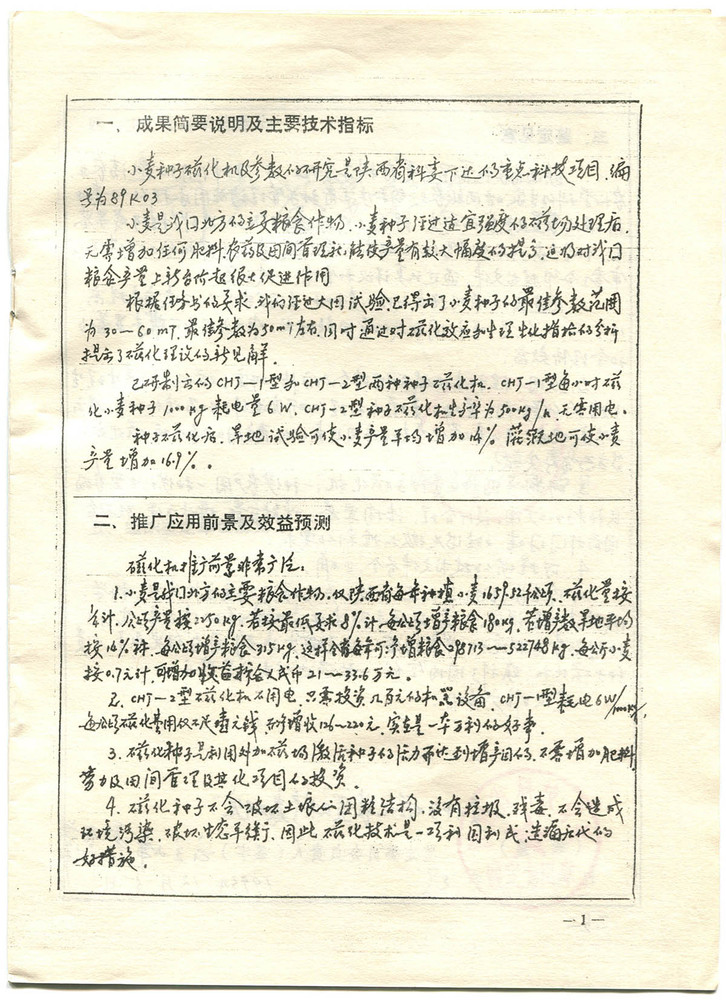 一、成果简要说明及主要技术指标
小麦种子磁化机及参数的研究是陕西省科委下达的重点科技项目,编
号为89K03
小麦是我国北方的主要粮食作物,小麦种子经过适宜强度的磁场处理后,
无需增加任何肥料、农药及田间管理就能使产量有较大幅度的提高,这将对我国
粮食产量上新台阶起很大促进作用
根据任务书的要求,我们经过大田试验,已得出了小麦种子的最佳参数范围
为30—60mT,最佳参数为50mT左右,同时通过对磁化效应和生理生化指标的分析
提出了磁化理论的新见解.
已研制出的CHJ—1型和CHJ—2型两种种子磁化机,CHJ—1型每小时磁
化小麦种子1000kg耗电量6W,CHJ—2型种子磁化机生产率为500kg/h,无需用电。
种子磁化后,旱地试验可使小麦产量平均增加14%,灌溉地可使小麦
产量增加16.9%。
二、推广应用前景及效益预测
磁化机推广前景非常广泛:
1.小麦是我国北方的主要粮食作物,仅陕西省每年种植小麦1659.52千公顷,磁化量按
计,公顷产量按2250kg,若按最低要求8%计,每公顷增产粮食180kg,若增产数旱地平均
按14%计,每公顷增产粮食315kg,这样全省每年可净增粮食298713~522748kg,每公斤小麦
按0.7元计,可增加收益折合人民币21~33.6万元。
2.CHJ—2型磁化机不用电,只需投资几百元的机器设备,CHJ—1型耗电6W/1000kg,
每公顷磁化费用仅不足壹元钱,可增收126~220元,实在是一本万利的好事.
3.磁化种子是利用外加磁场激活种子的活力而达到增产目的,不需增加肥料,
劳力及田间管理及其他项目的投资。
4.磁化种子不会破坏土壤的团粒结构,没有垃圾、残毒,不会造成
环境污染,破坏生态平衡,因此,磁化技术是一项利国利民,造福后代的
好措施。
—1—